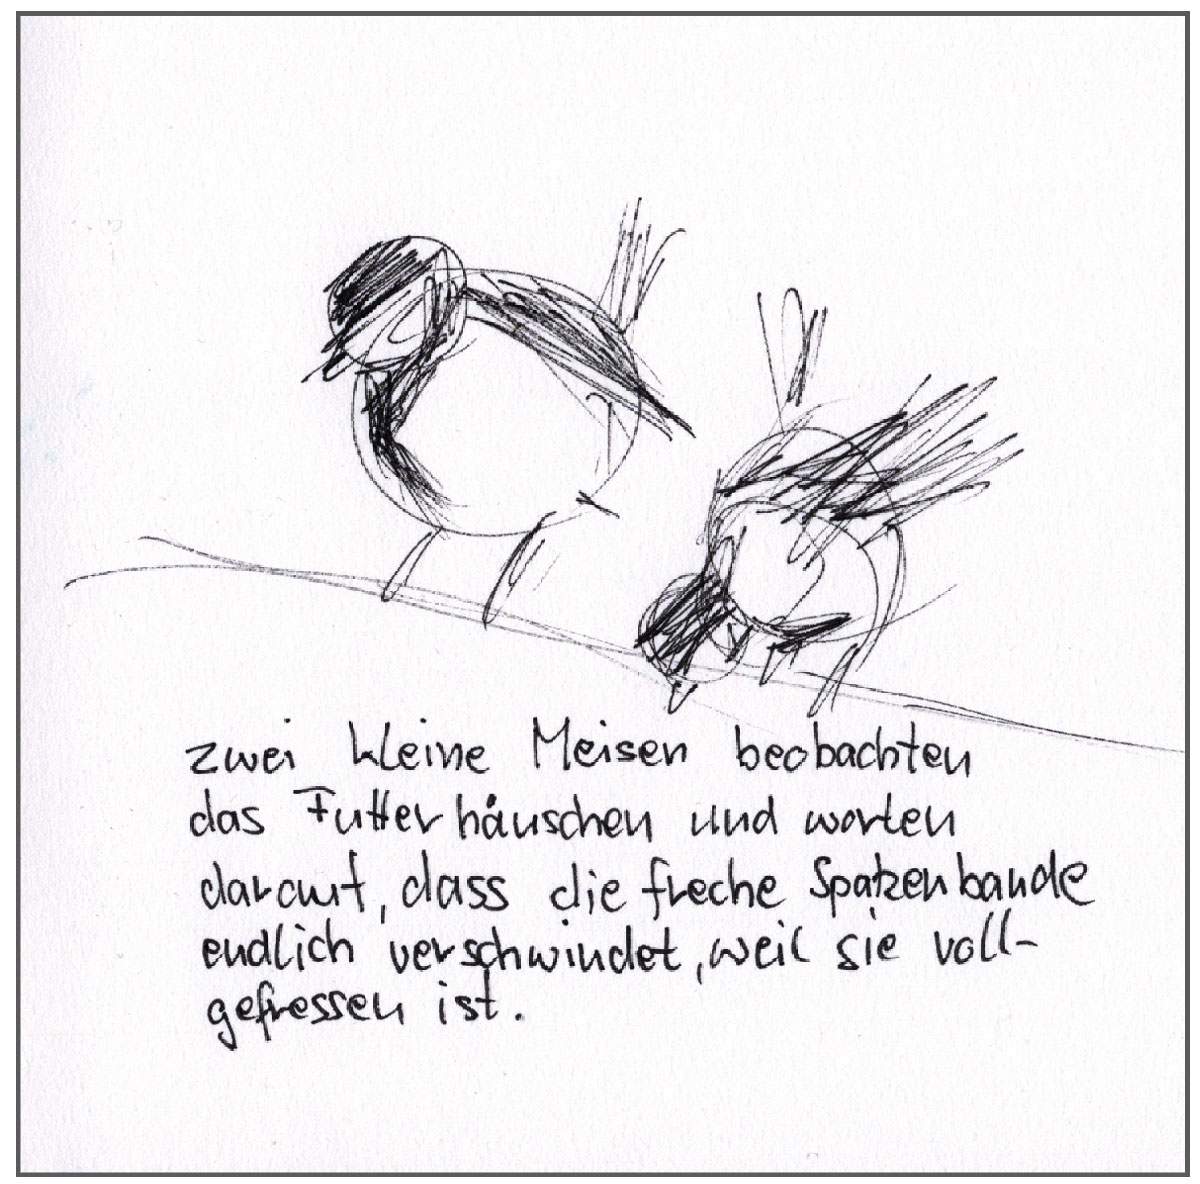 zwei kleine Meisen beobachten
das Futterhäuschen und warten
darauf, dass die freche Spatzenbande
endlich verschwindet, weil sie voll-
gefressen ist.